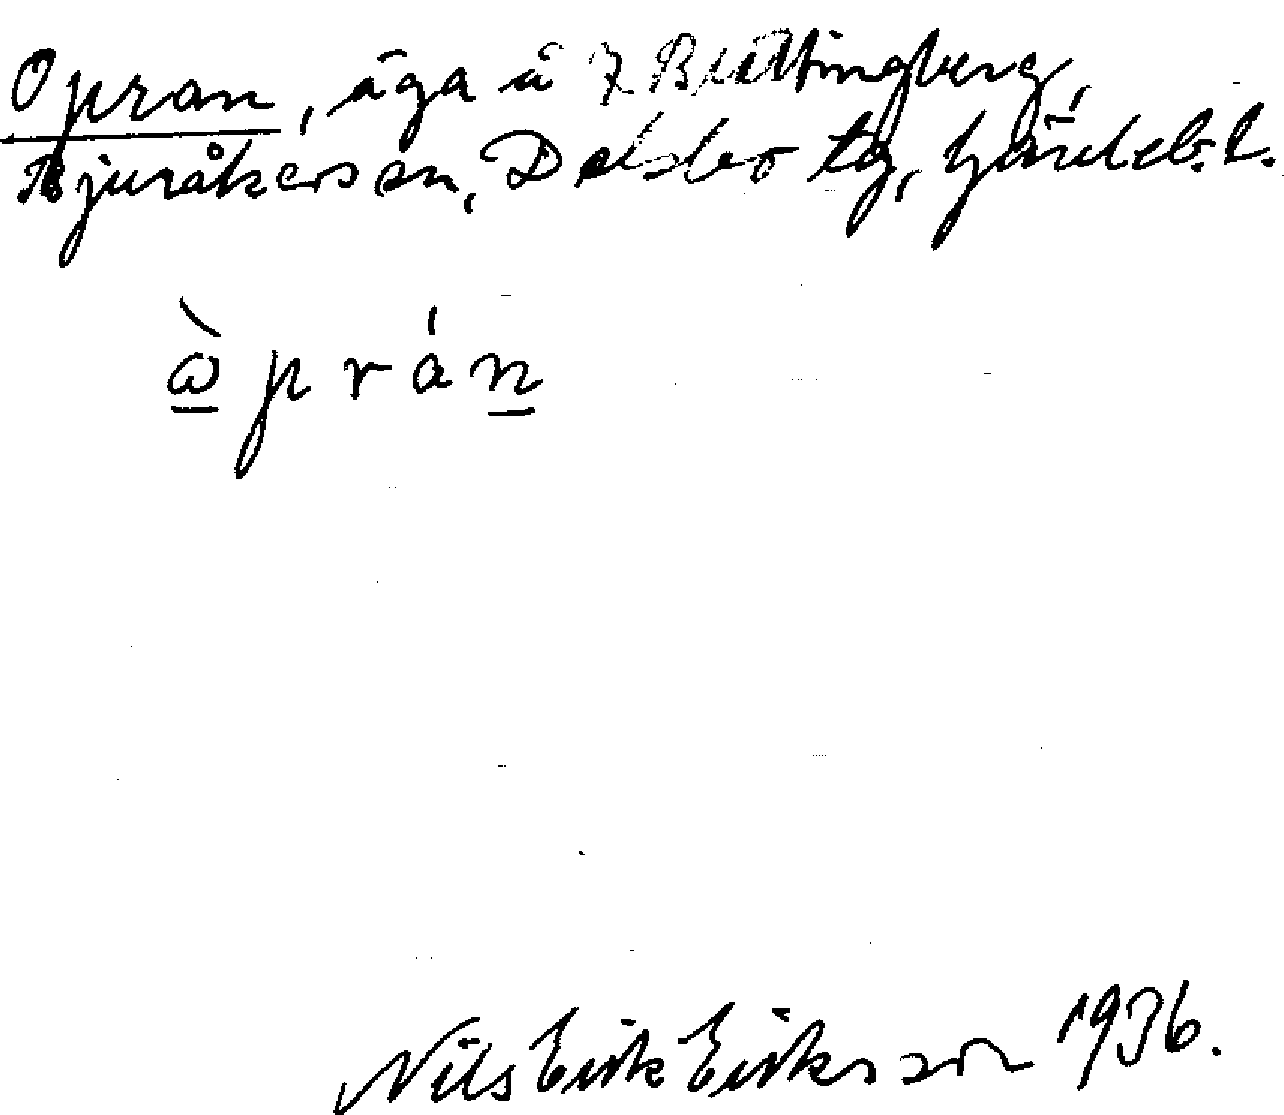 Opran, äga å 7 Bruttingberg,
Bjuråkers sn, Delsbo tg, Gävleb. l.
ὼ p r á n
Nils Erik Eriksson 1936.